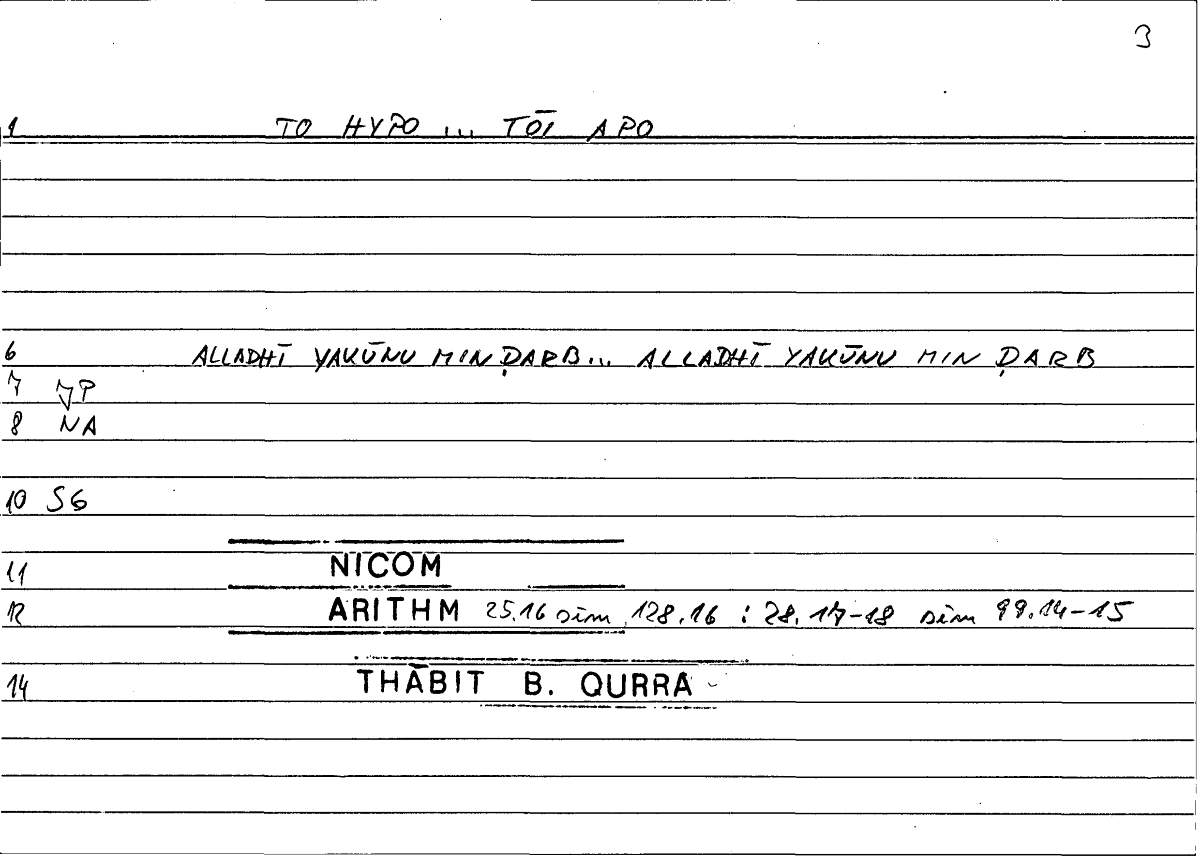 3
1 TO HYPO ... TŌI APO
6 ALLADHĪ YAKŪNU MIN ḌARB... ALLADHĪ YAKŪNU MIN ḌARB
7 JP
8 NA
10 SG
11 NICOM
12 ARITHM 25.16 sim 128.16 : 28.17-18 sim 99.14-15
14 THĀBIT B. QURRA